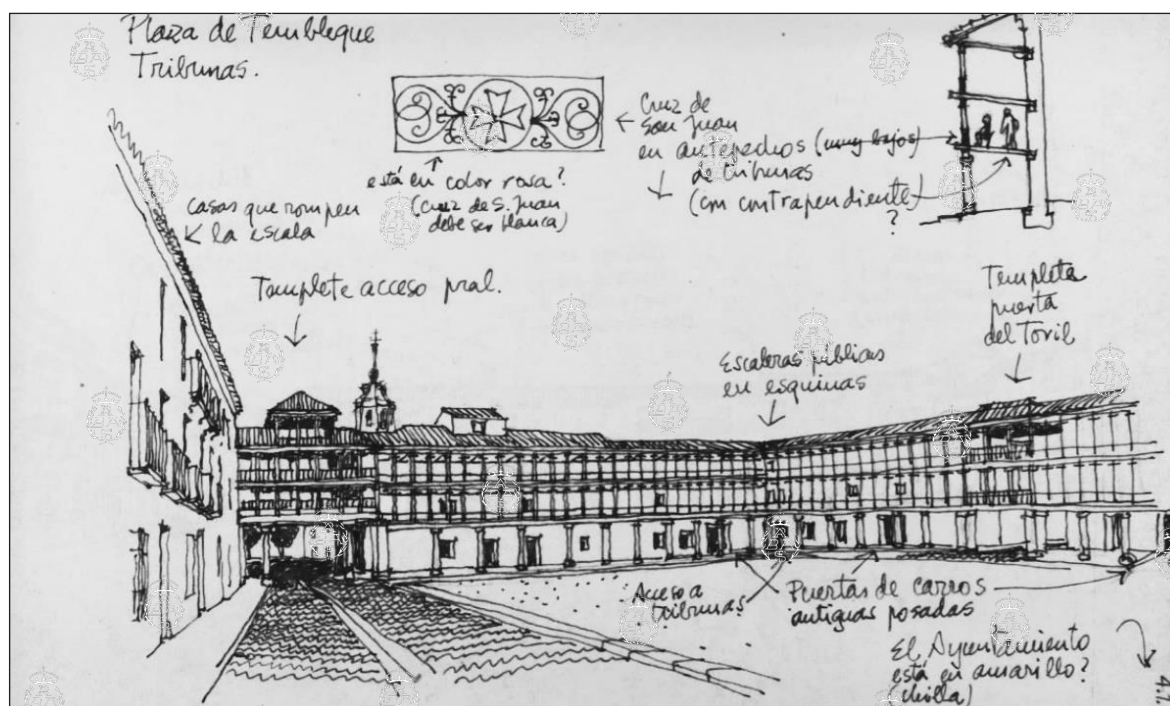 Plaza de Tembleque
Tribunas.
Cruz de
San Juan
en antepechos (muy bajos)
de tribunas
(con contrapendiente)
?
está en color rosa?
(cruz de S. Juan
debe ser blanca)
casas que rompen
la escala
Templete acceso pral.
Escaleras públicas
en esquinas
Templete
puerta
del Toril
Acceso a
tribunas
Puertas de carros
antiguas posadas
El Ayuntamiento
está en amarillo?
(chilla)
41.